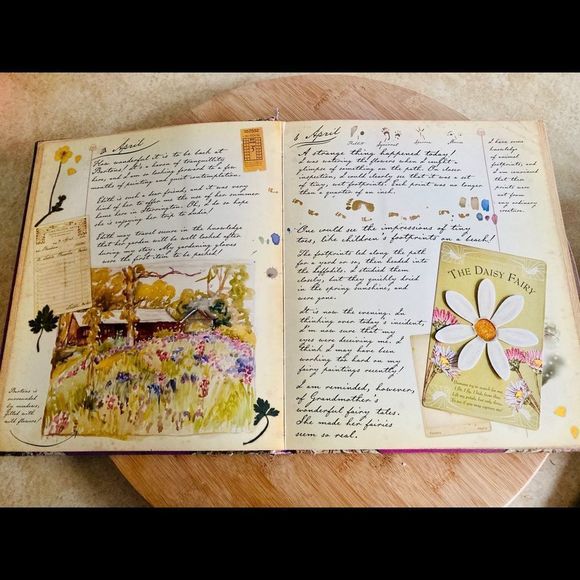 3 April
How wonderful it is to be back at
Pinetons! It's a haven of tranquillity
here, and I'm so looking forward to a few
months of painting and quiet contemplation.
Edith is such a dear friend, and it was very
kind of her to offer me the use of her summer
home here in Storrington. Oh, I do so hope
she is enjoying her trip to India!
Edith may travel secure in the knowledge
that her garden will be well looked after
during my stay. My gardening gloves
were the first item to be packed!
is surrounded
by meadows
filled with
wild flowers!
6 April
Rabbit
Squirrel
A strange thing happened today!
I was watering the flowers when I caught a
glimpse of something on the path. On closer
inspection, I could clearly see that it was a set
of tiny, wet footprints. Each print was no longer
than a quarter of an inch.
I have some
knowledge
of animal
footprints, and
I am convinced
that these
prints were
not from
any ordinary
creature.
One could see the impressions of tiny
toes, like children's footprints on a beach!
The footprints led along the path
for a yard or so, then headed into
the daffodils. I studied them
closely, but they quickly dried
in the spring sunshine, and
were gone.
It is now the evening. In
thinking over today's incident,
I'm now sure that my
eyes were deceiving me. I
think I may have been
working too hard on my
fairy paintings recently!
I am reminded, however,
of Grandmother's
wonderful fairy tales.
She made her fairies
seem so real.
THE DAISY FAIRY